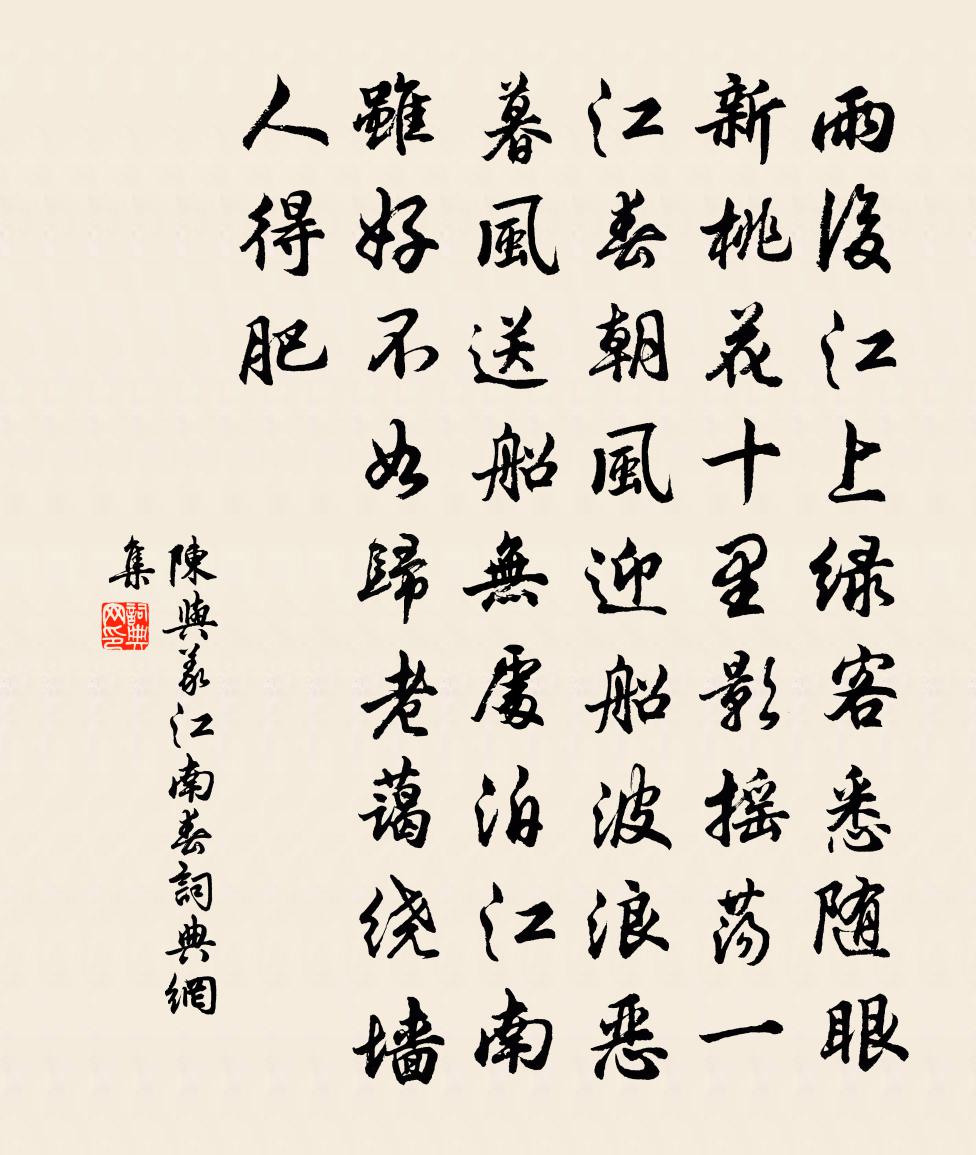 雨後江上緑客悉随眼
新桃花十里影摇荡一
江春朝風迎船波浪恶
暮風送船無處泊江南
雖好不如歸老藹绕墙
人得肥
陳與義江南春詞典網
集
詞典
网印